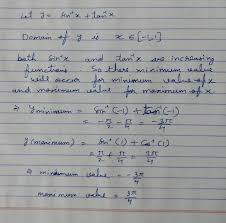 Let y = sin⁻¹x + tan⁻¹x
Domain of y is x ∈ [-1,1]
both sin⁻¹x and tan⁻¹x are increasing
functions. So there minimum value
will occur for minimum value of x
and maximum value for maximum of x.
⇒ y minimum = sin⁻¹(-1) + tan⁻¹(-1)
= -π/2 - π/4 = -3π/4
y (maximum) = sin⁻¹(1) + (1)
= π/2 + π/4 = 3π/4
⇒ minimum value = -3π/4
maximum value = 3π/4